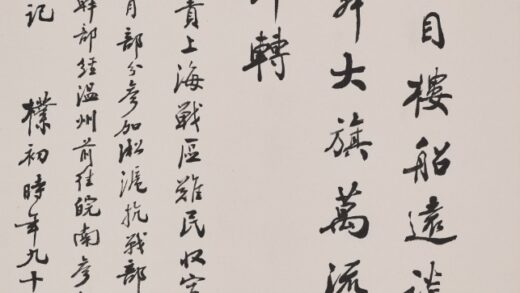 目樓船遠談
大旗萬流
轉
責上海戰區難民收容
月部分參加淞滬抗戰部
幹部經温州前往皖南參
記 樸初時年九十